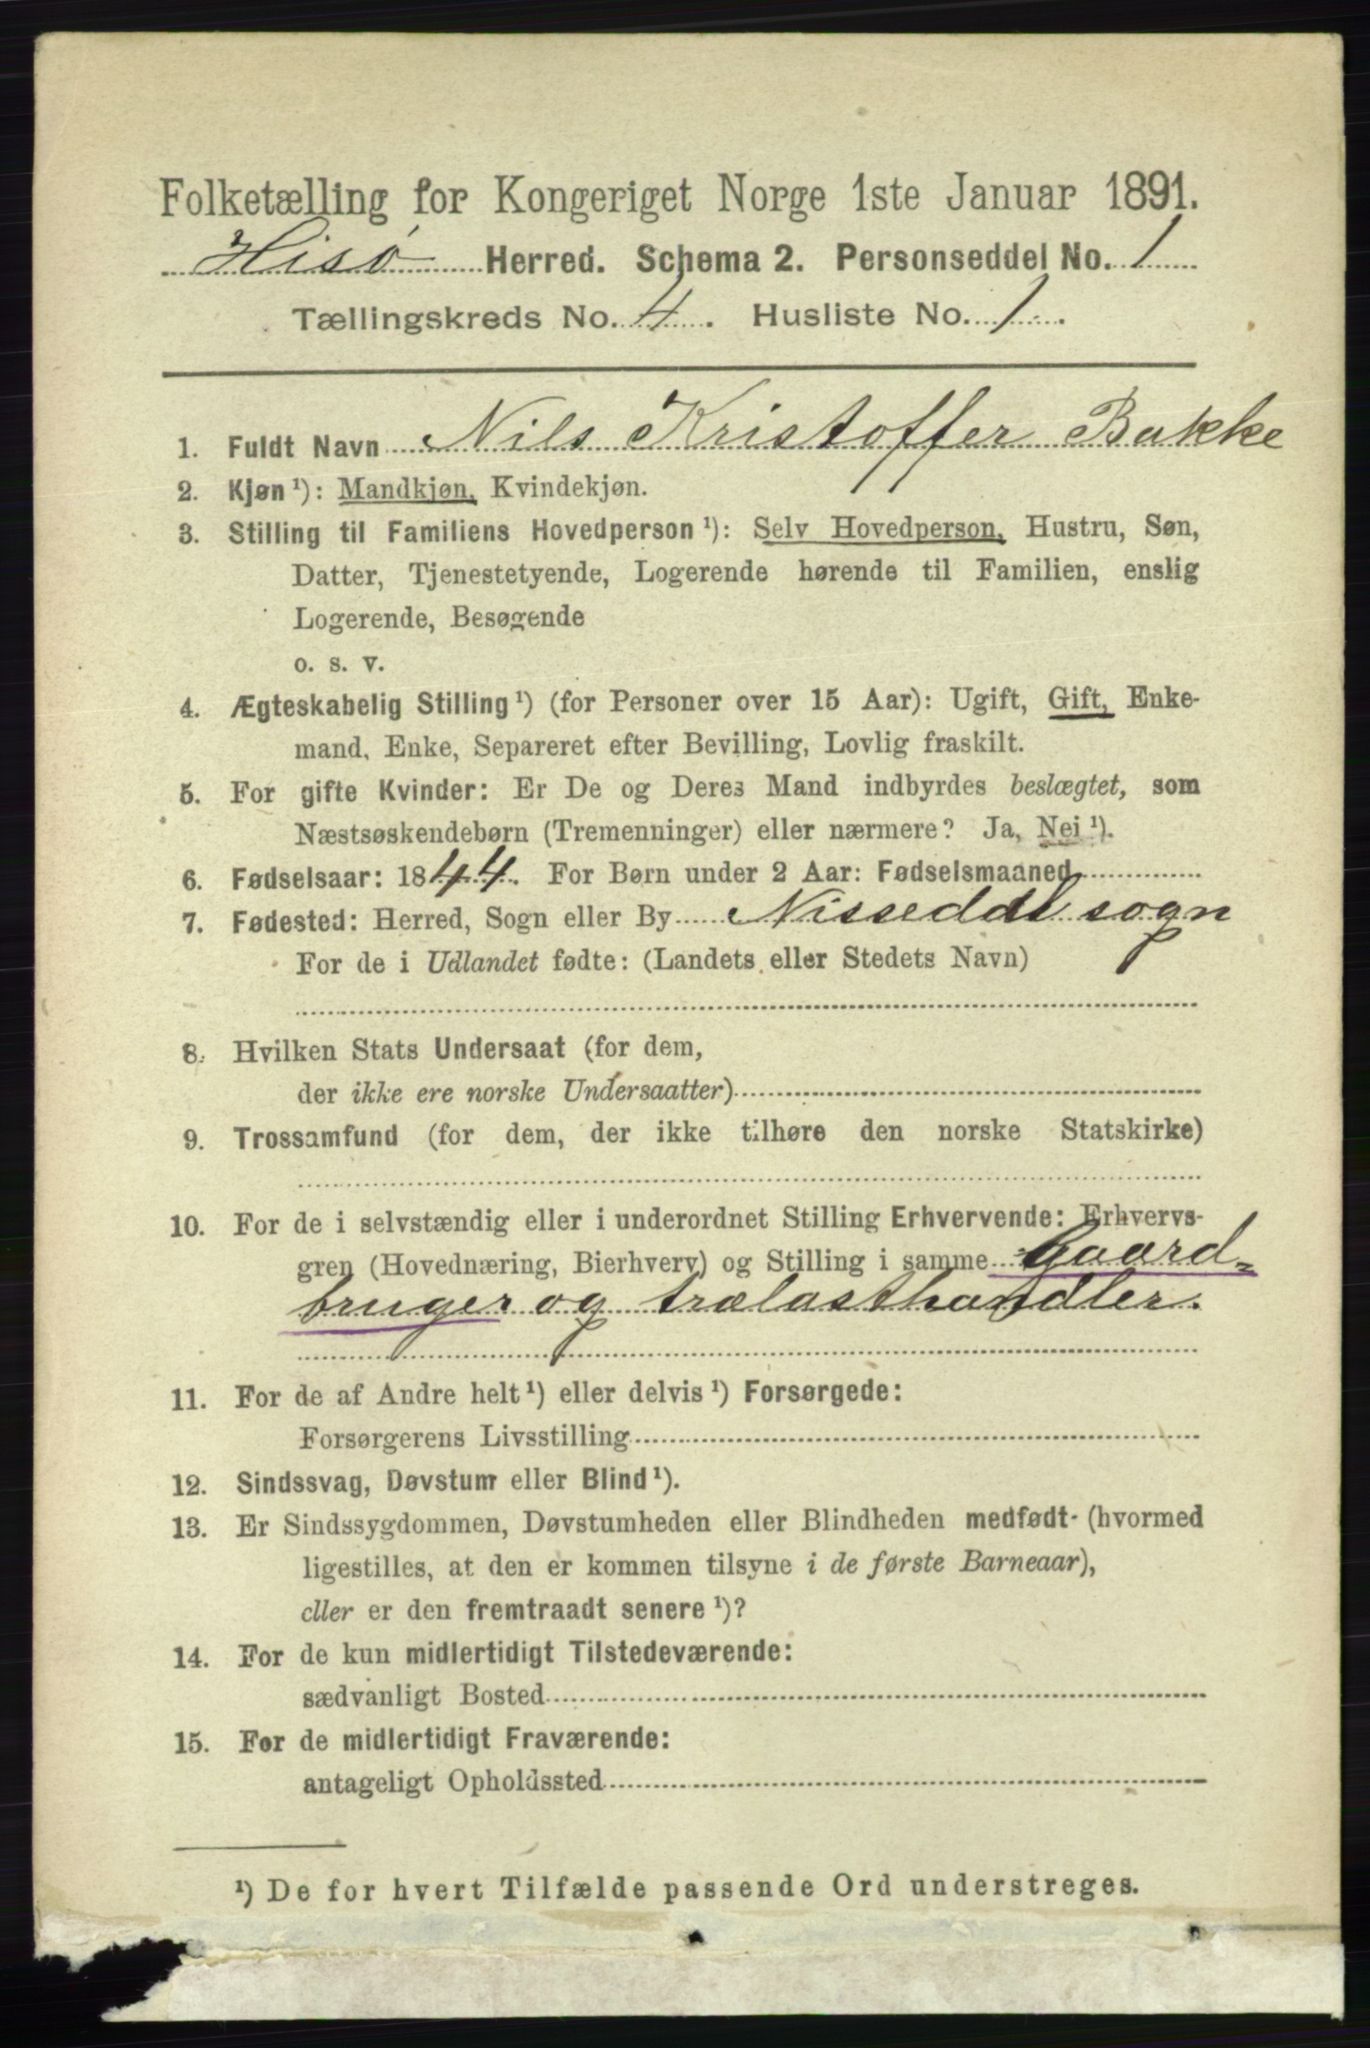 Folketælling for Kongeriget Norge 1ste Januar 1891.
Hisø Herred. Schema 2. Personseddel No. 1
Tællingskreds No. 4. Husliste No. 1.
1. Fuldt Navn Nils Kristoffer Bakke
2. Kjøn ¹): Mandkjøn, Kvindekjøn.
3. Stilling til Familiens Hovedperson ¹): Selv Hovedperson, Hustru, Søn,
Datter, Tjenestetyende, Logerende hørende til Familien, enslig
Logerende, Besøgende
o. s. v.
4. Ægteskabelig Stilling ¹) (for Personer over 15 Aar): Ugift, Gift, Enke-
mand, Enke, Separeret efter Bevilling, Lovlig fraskilt.
5. For gifte Kvinder: Er De og Deres Mand indbyrdes beslægtet, som
Næstsøskendebørn (Tremenninger) eller nærmere? Ja, Nei ¹).
6. Fødselsaar: 1844. For Børn under 2 Aar: Fødselsmaaned
7. Fødested: Herred, Sogn eller By Nisseddal sogn
For de i Udlandet fødte: (Landets eller Stedets Navn)
8. Hvilken Stats Undersaat (for dem,
der ikke ere norske Undersaatter)
9. Trossamfund (for dem, der ikke tilhøre den norske Statskirke)
10. For de i selvstændig eller i underordnet Stilling Erhvervende: Erhvervs-
gren (Hovednæring, Bierhverv) og Stilling i samme Gaard=
bruger og trælasthandler.
11. For de af Andre helt ¹) eller delvis ¹) Forsørgede:
Forsørgerens Livsstilling
12. Sindssvag, Døvstum eller Blind ¹).
13. Er Sindssygdommen, Døvstumheden eller Blindheden medfødt (hvormed
ligestilles, at den er kommen tilsyne i de første Barneaar),
eller er den fremtraadt senere ¹)?
14. For de kun midlertidigt Tilstedeværende:
sædvanligt Bosted
15. For de midlertidigt Fraværende:
antageligt Opholdssted
¹) De for hvert Tilfælde passende Ord understreges.